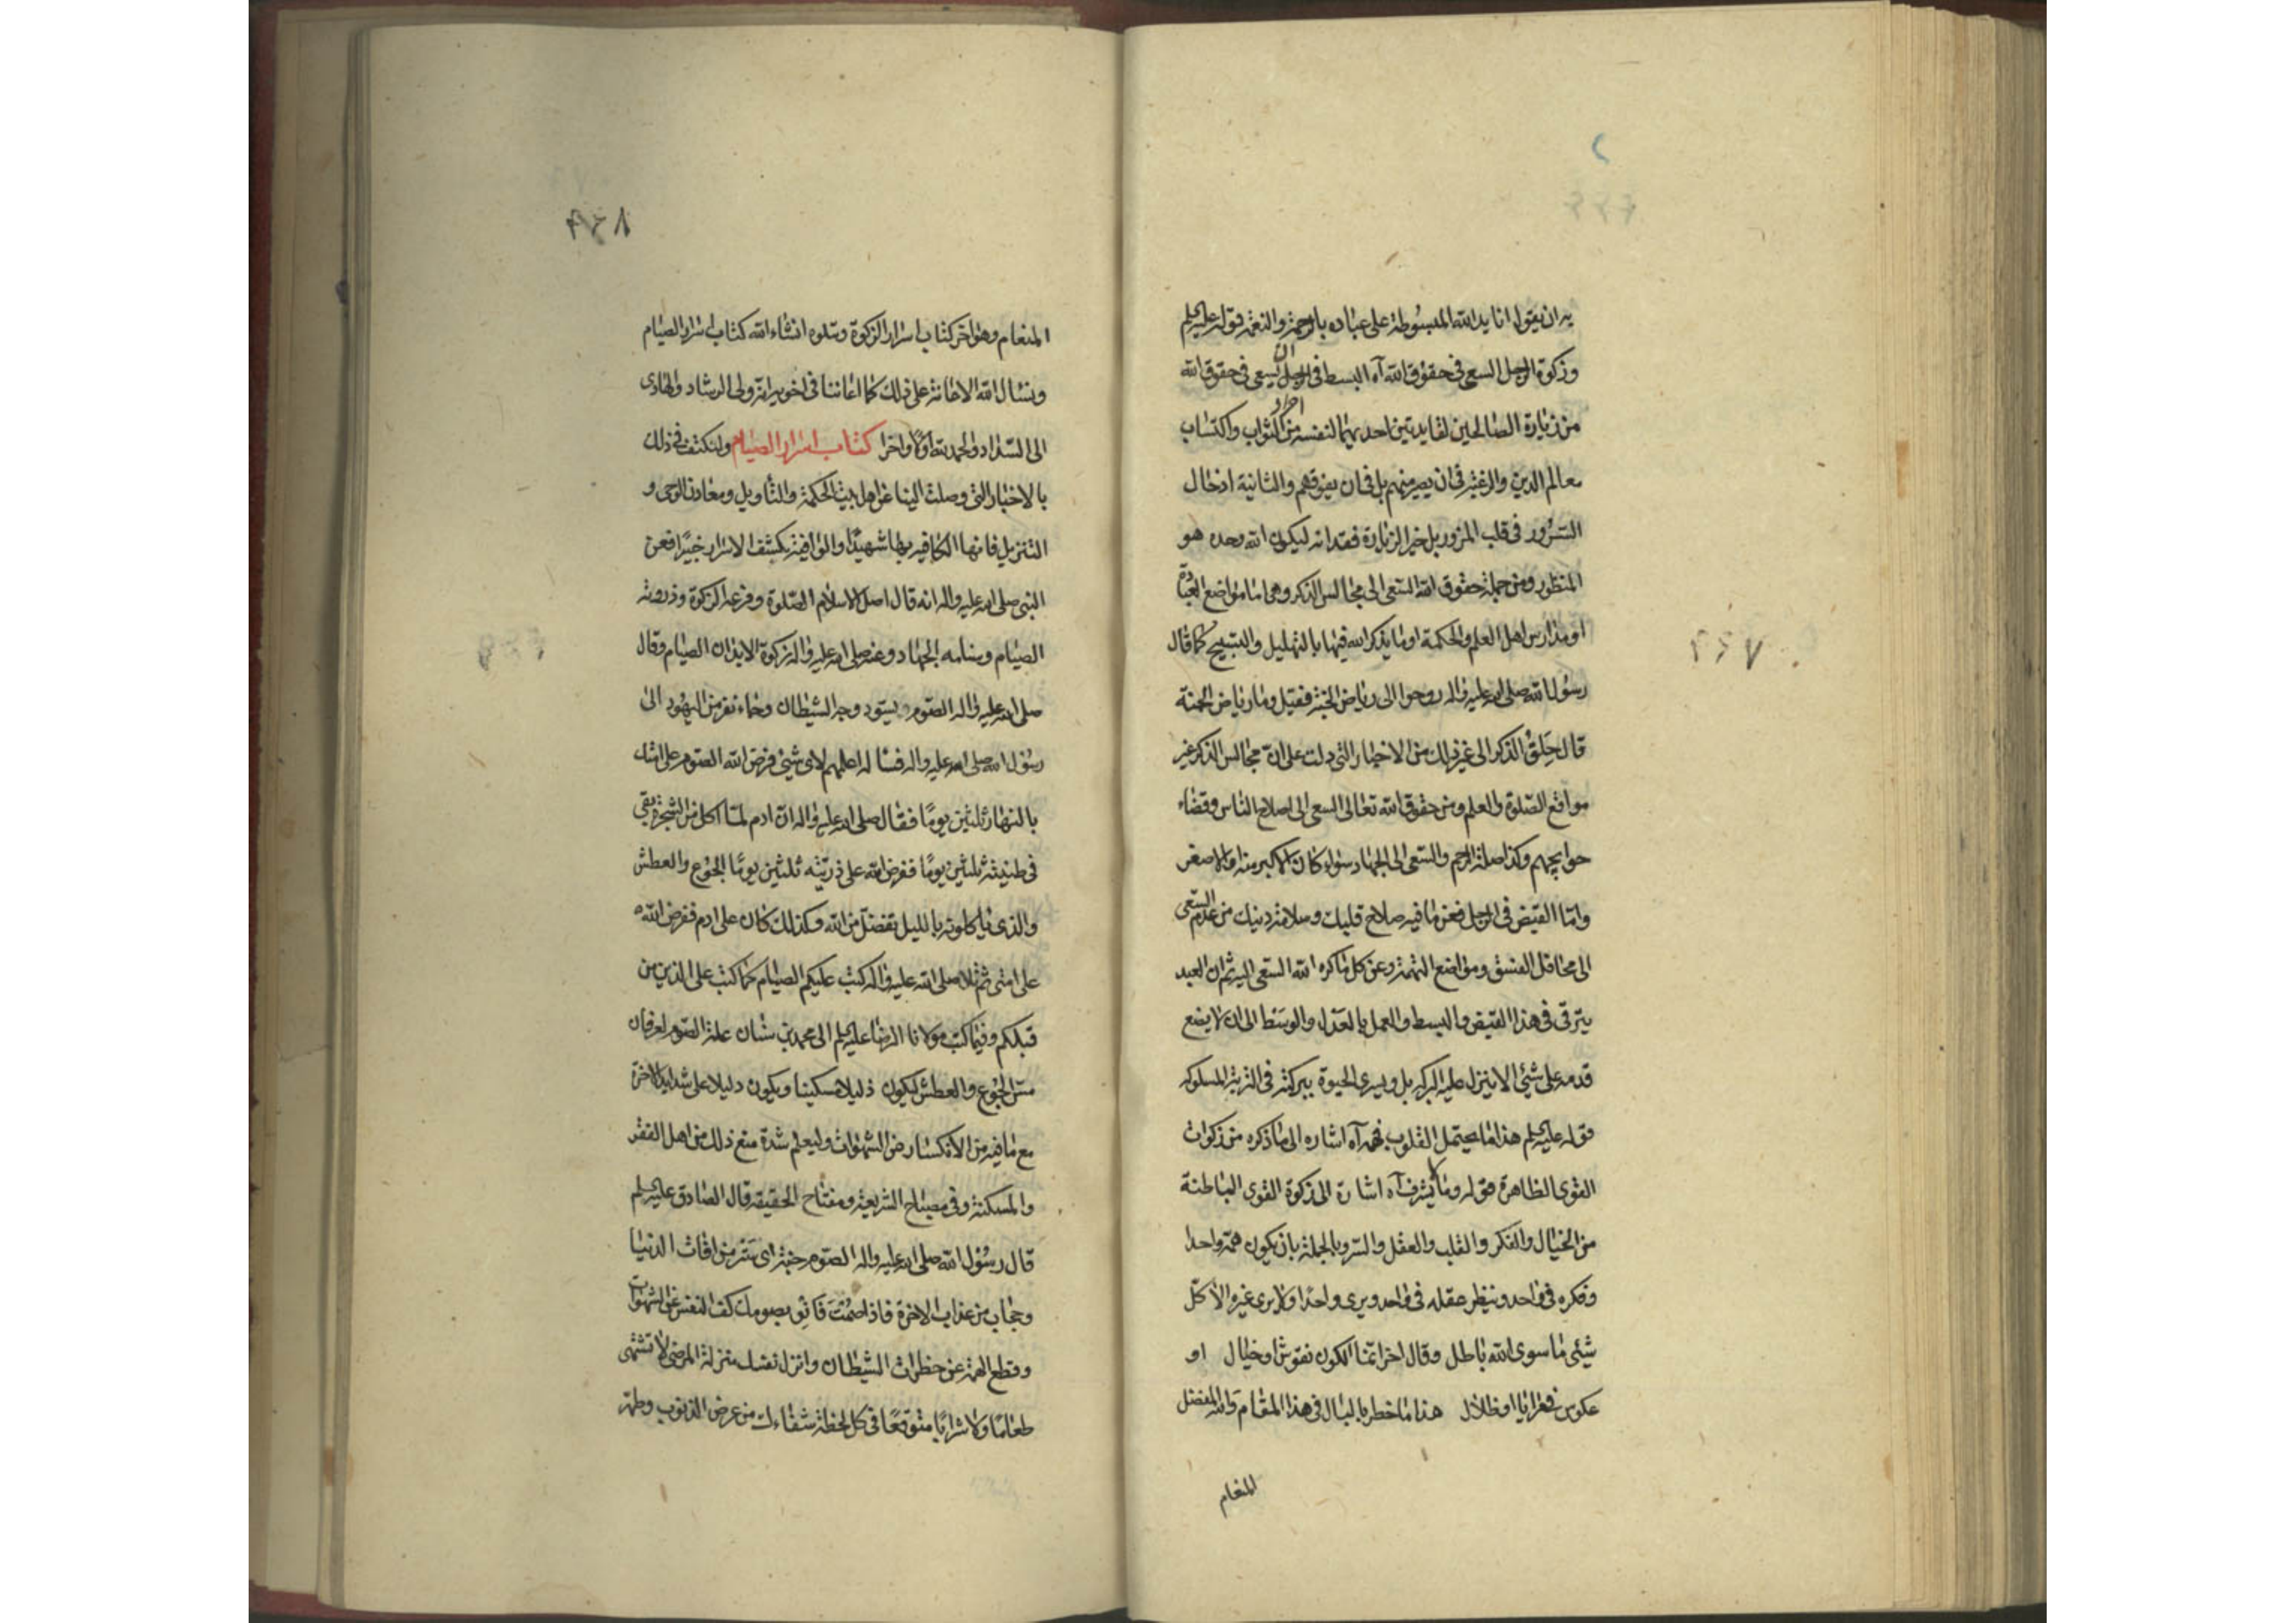 يه ان يقول انا يد الله المبسوطة على عباده بالرحمة والنعمة قوله عليه السلم
وزكوة الرجل السعى فى حقوق الله آه البسط فى الرجل ان يسعى فى حقوق الله
من زيارة الصالحين لفايدتين احديهما لنفسه من احراز الثواب واكتساب
معالم الدين والرغبة فى ان يصير منهم بل فى ان يفوقهم والثانية ادخال
السّرُور فى قلب المزور بل خير الزيارة فقدانه ليكون الله وحده هو
المنظور ومن جملة حقوق الله السّعى الى مجالس الذكر وهى اما مواضع العبادة
او مدارس اهل العلم والحكمة او ما يذكر الله فيها بالتهليل والتسبيح كما قال
رسُول الله صلى الله عليه واله روحوا الى رياض الجنة فقيل وما رياض الجنة
قال حِلَقُ الذكر الى غير ذلك من الاخبار التى دلت على انّ مجالس الذكر غير
مواقع الصّلوة والعلم ومن حقوق الله تعالى السعى الى اصلاح الناس وقضاء
حوايجهم وكذا صلة الرحم والسّعى الى الجهاد سواء كان الاكبر منه او الاصغر
وامّا القبض فى الرجل فعن ما فيه صلاح قلبك وسلامة دينك من عدم السّعى
الى محافل الفسق ومواضع التهمة وعن كل ما كره الله السّعى اليه ثم ان العبد
يترقى فى هذا القبض والبسط والعمل بالعَدل والوسَط الى ان لا يضع
قدمه على شئ الا ينزل عليه البركة بل ويسرى الحيوة ببركته فى التربة المسلوكة
قوله عليه السلم هذا ما يحتمل القلوب فهمه آه اشاره الى ما ذكره من زكوات
القوى الظاهرة قوله وما لا يشرف آه اشارة الى زكوة القوى الباطنة
من الخيال والفكر والقلب والعقل والسّر وبالجملة بان يكون همّه واحدا
وفكره فى واحد وينظر عقله فى واحد ويرى واحدًا ولا يرى غيره الا كل
شيئ ما سوى الله باطل وقال اخر انّما الكون نقوش او خيال او
عكوس فى مرايا او ظلال هذا ما خطر بالبال فى هذا المقام والله المفضل
المنعام
٢٦٧
المنعام وهو آخر كتاب اسرار الزكوة ويتلوه انشاء الله كتاب اسرار الصيام
ونسال الله الاعانة على ذلك كما اعاننا فى اخويه انّه ولى الرشاد والهادى
الى السّداد والحمد لله اوّلا واخرا كتاب اسرار الصيام ولنكتف فى ذلك
بالاخبار التى وصلت الينا عن اهل بيت الحكمة والتأويل ومعادن الوحى و
التنزيل فانها الكافيه بها شهيدًا والوافية بكشف الاسرار خبيرًا فعن
النبى صلى الله عليه واله انه قال اصل الاسلام الصّلوة وفرعه الزكوة وذروته
الصيام وسنامه الجهاد وعنه صلى الله عليه واله زكوة الابدان الصيام وقال
صلى الله عليه واله الصّوم يسوّد وجه الشيطان وجاء نفر من اليهُود الى
رسُول الله صلى الله عليه واله فساله اعلمهم لاى شيئ فرض الله الصّوم على امتك
بالنهار ثلثين يومًا فقال صلى الله عليه واله انّ ادم لمّا اكل من الشجرة بقى
فى طينته ثلثين يومًا ففرض الله على ذرّيّته ثلثين يومًا الجُوع والعطش
والذى ياكلونه بالليل تفضّل من الله وكذلك كان على ادم ففرض الله
على امتى ثم تلا صلى الله عليه واله كتب عليكم الصيام كما كتب على الذين من
قبلكم وفيما كتب مولانا الرضا عليه السلم الى محمد بن سنان علة الصّوم لعرفان
مسّ الجُوع والعطش ليكون ذليلا مسكينا ويكون دليلا على شدايد الاخرة
مع ما فيه من الانكسار عن الشهوات وليعلم شدة مبلغ ذلك من اهل الفقر
والمسكنة وفى مصباح الشريعة ومفتاح الحقيقه قال الصادق عليه السلم
قال رسُول الله صلى الله عليه واله الصّوم جنة اى ستر من افات الدنيا
وحجاب من عذاب الاخرة فاذا صُمْتَ فانو بصومك كف النفس عن الشهوات
وقطع الهمة عن خطرات الشيطان وانزل نفسك منزلة المرضى لا تشتهى
طعامًا ولا شرابًا متوقّعًا فى كل لحظة شفاءك من مرض الذنوب وطهّر